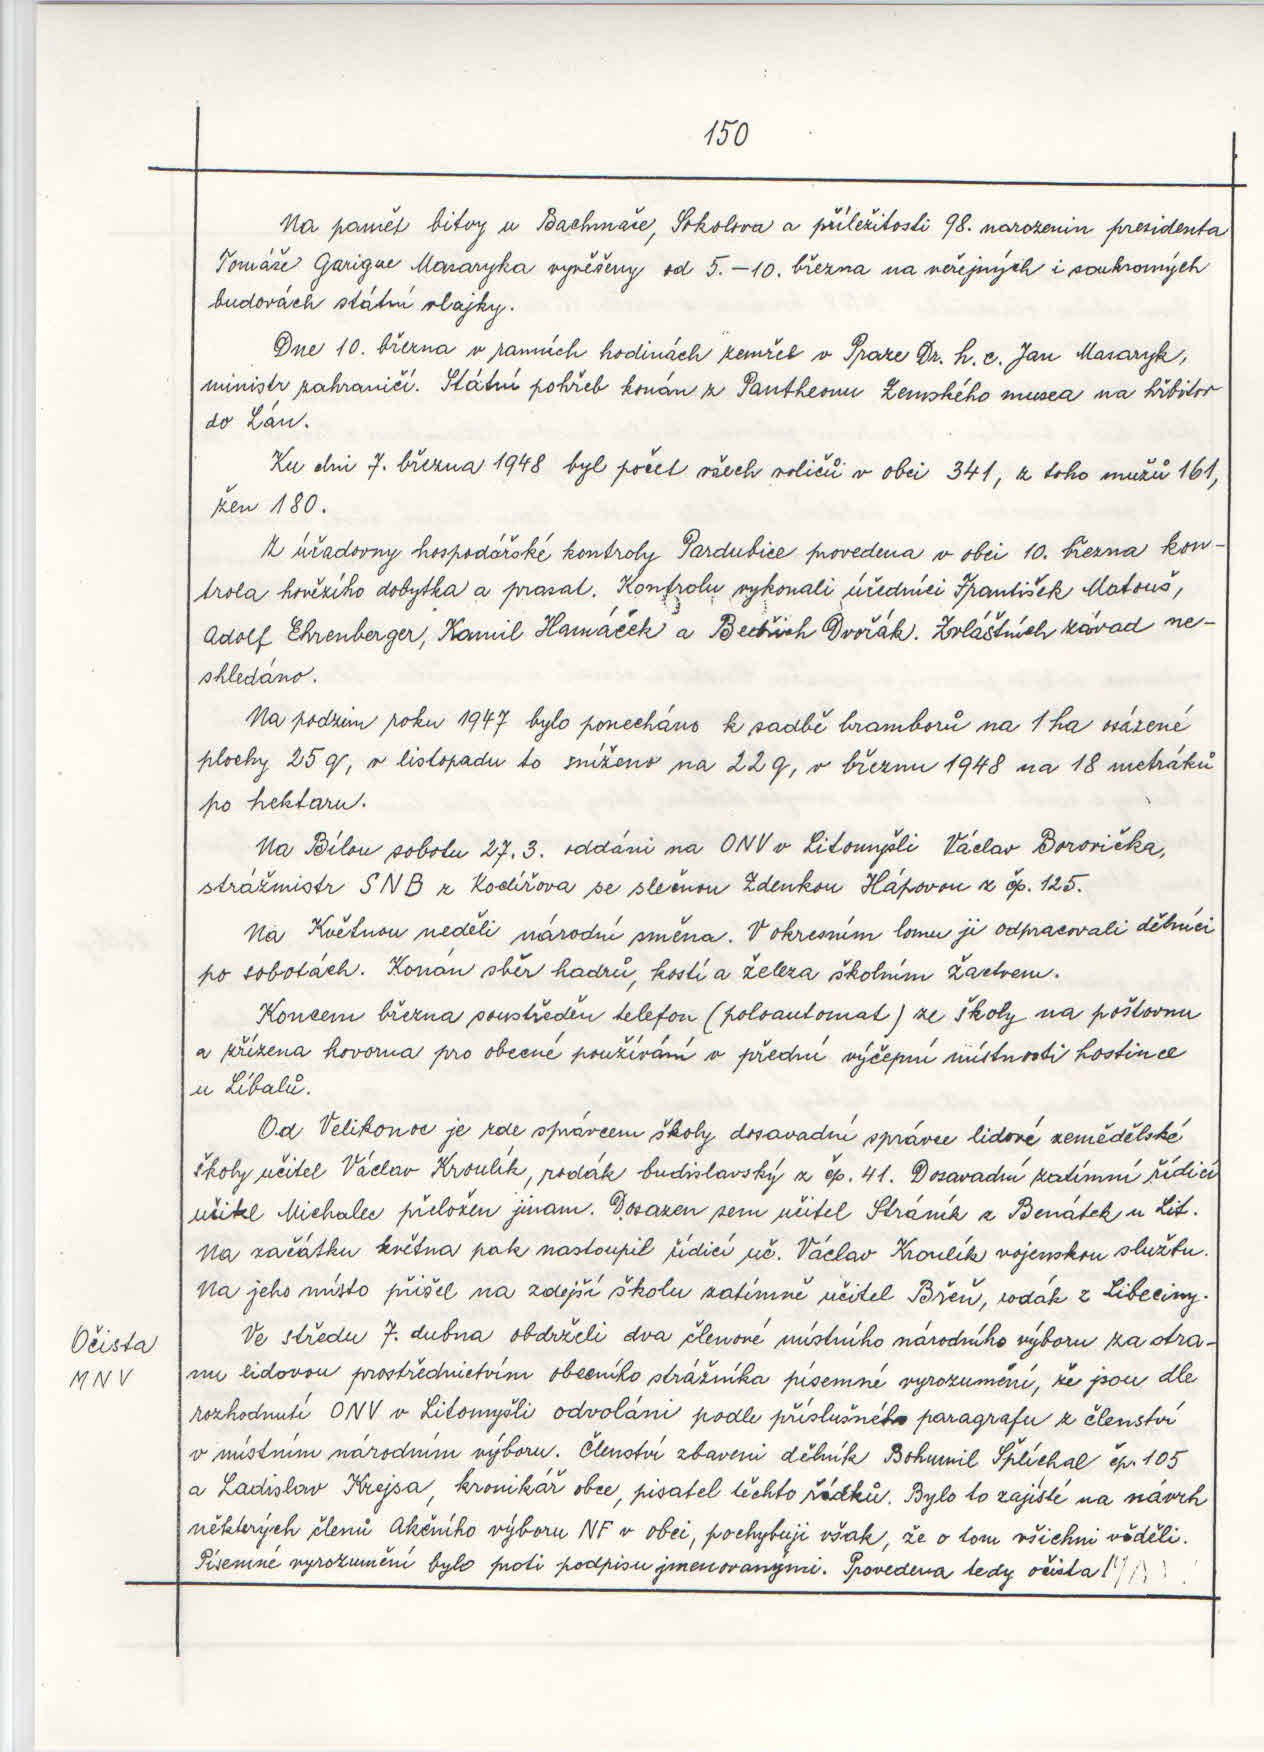 150
Na paměť bitvy u Bachmače, Sokolova a příležitosti 98. narozenin presidenta
Tomáše Garigue Masaryka vyvěšeny od 5.–10. března na veřejných i soukromých
budovách státní vlajky.
Dne 10. března v ranních hodinách zemřel v Praze Dr. h. c. Jan Masaryk,
ministr zahraničí. Státní pohřeb konán z Pantheonu Zemského musea na hřbitov
do Lán.
Ku dni 7. března 1948 byl počet všech voličů v obci 341, z toho mužů 161,
žen 180.
Z úřadovny hospodářské kontroly Pardubice provedena v obci 10. března kon-
trola hovězího dobytka a prasat. Kontrolu vykonali úředníci František Matouš,
Adolf Ehrenberger, Kamil Hamáček a Bedřich Dvořák. Zvláštních závad ne-
shledáno.
Na podzim roku 1947 bylo ponecháno k sadbě bramborů na 1 ha osázené
plochy 25 q, v listopadu to sníženo na 22 q, v březnu 1948 na 18 metráků
po hektaru.
Na Bílou sobotu 27. 3. oddáni na ONV v Litomyšli Václav Borovička,
strážmistr SNB z Kociřova se slečnou Zdenkou Hápovou z čp. 125.
Na Květnou neděli národní směna. V okresním lomu ji odpracovali dělníci
po sobotách. Konán sběr hadrů, kostí a železa školním žactvem.
Koncem března soustředěn telefon (poloautomat) ze školy na poštovnu
a zřízena hovorna pro obecné používání v přední výčepní místnosti hostince
u Libalů.
Od Velikonoc je zde správcem školy dosavadní správce lidové zemědělské
školy učitel Václav Kroulík, rodák budislavský z čp. 41. Dosavadní zatímní řídicí
učitel Michalec přeložen jinam. Dosazen sem učitel Stráník z Benátek u Lit.
Na začátku května pak nastoupil řídicí uč. Václav Kroulík vojenskou službu.
Na jeho místo přišel na zdejší školu zatímně učitel Břeň, rodák z Libeciny.
Očista
MNV
Ve středu 7. dubna obdrželi dva členové místního národního výboru za stra-
nu lidovou prostřednictvím obecního strážníka písemné vyrozumění, že jsou dle
rozhodnutí ONV v Litomyšli odvoláni podle příslušného paragrafu z členství
v místním národním výboru. Členství zbaveni dělník Bohumil Šplíchal čp. 105
a Ladislav Krejsa, kronikář obce, pisatel těchto řádků. Bylo to zajisté na návrh
některých členů Akčního výboru NF v obci, pochybuji však, že o tom všichni věděli.
Písemné vyrozumění bylo proti podpisu jmenovanými. Provedena tedy očista